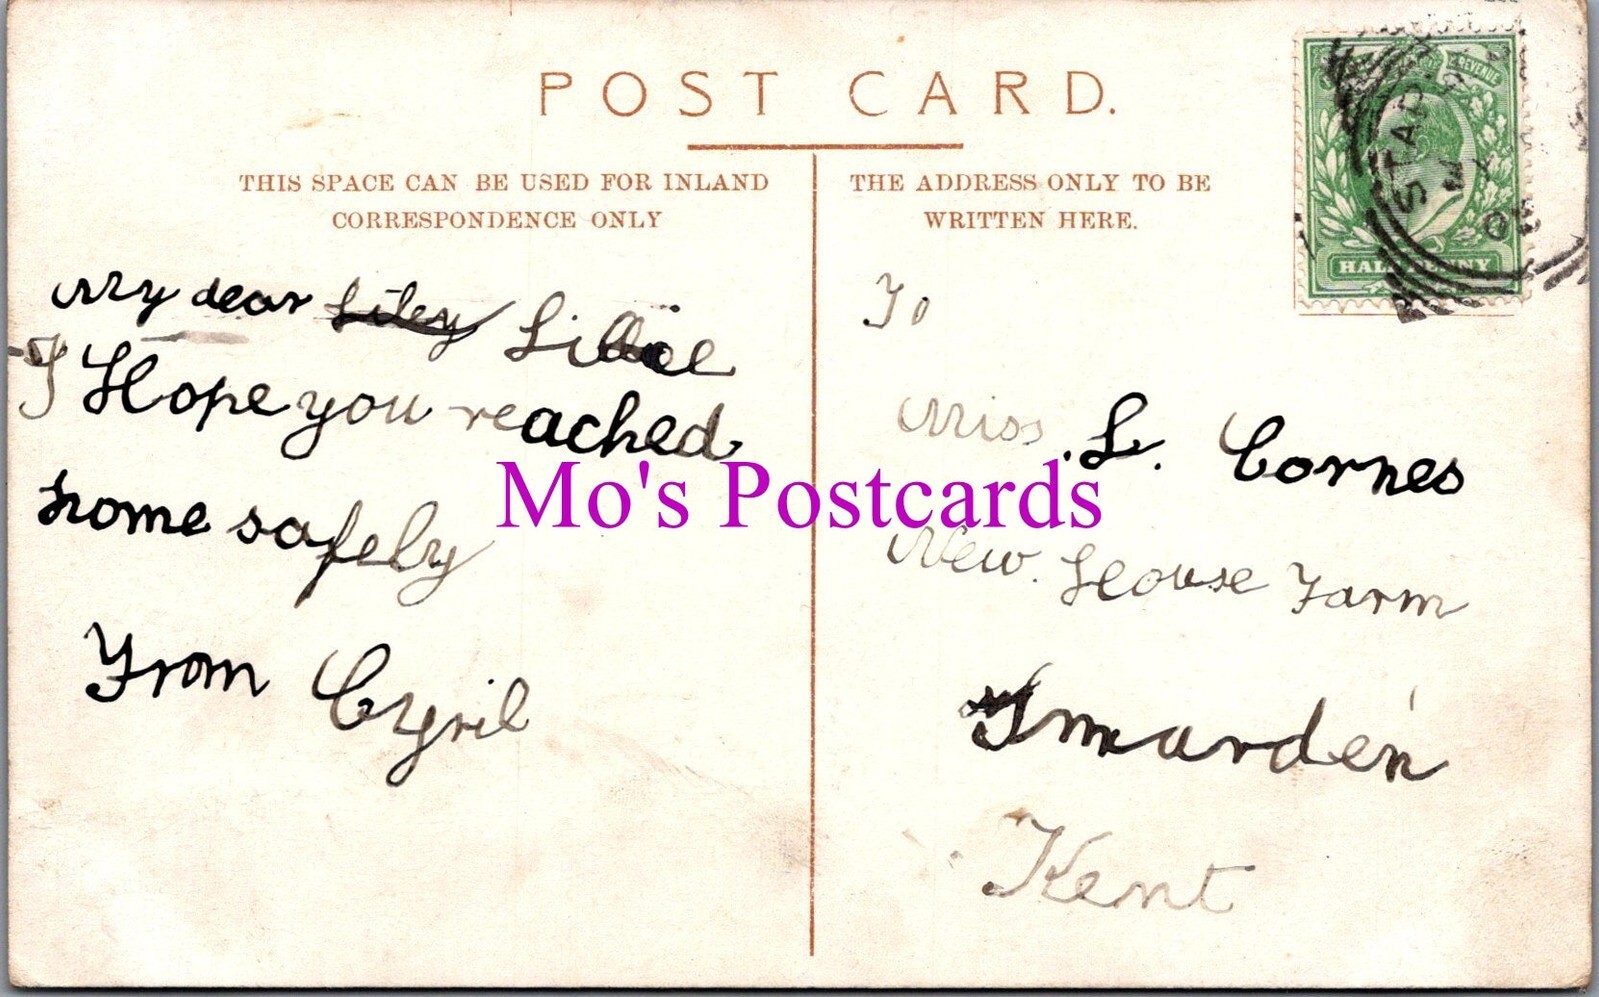 POST CARD.
THIS SPACE CAN BE USED FOR INLAND
CORRESPONDENCE ONLY
THE ADDRESS ONLY TO BE
WRITTEN HERE.
REVENUE
HALFPENNY
My dear Liley Lillie
I Hope you reached
home safely
From Cyril
To
Miss. L. Cornes
New. House Farm
Smarden
Kent
Mo's Postcards